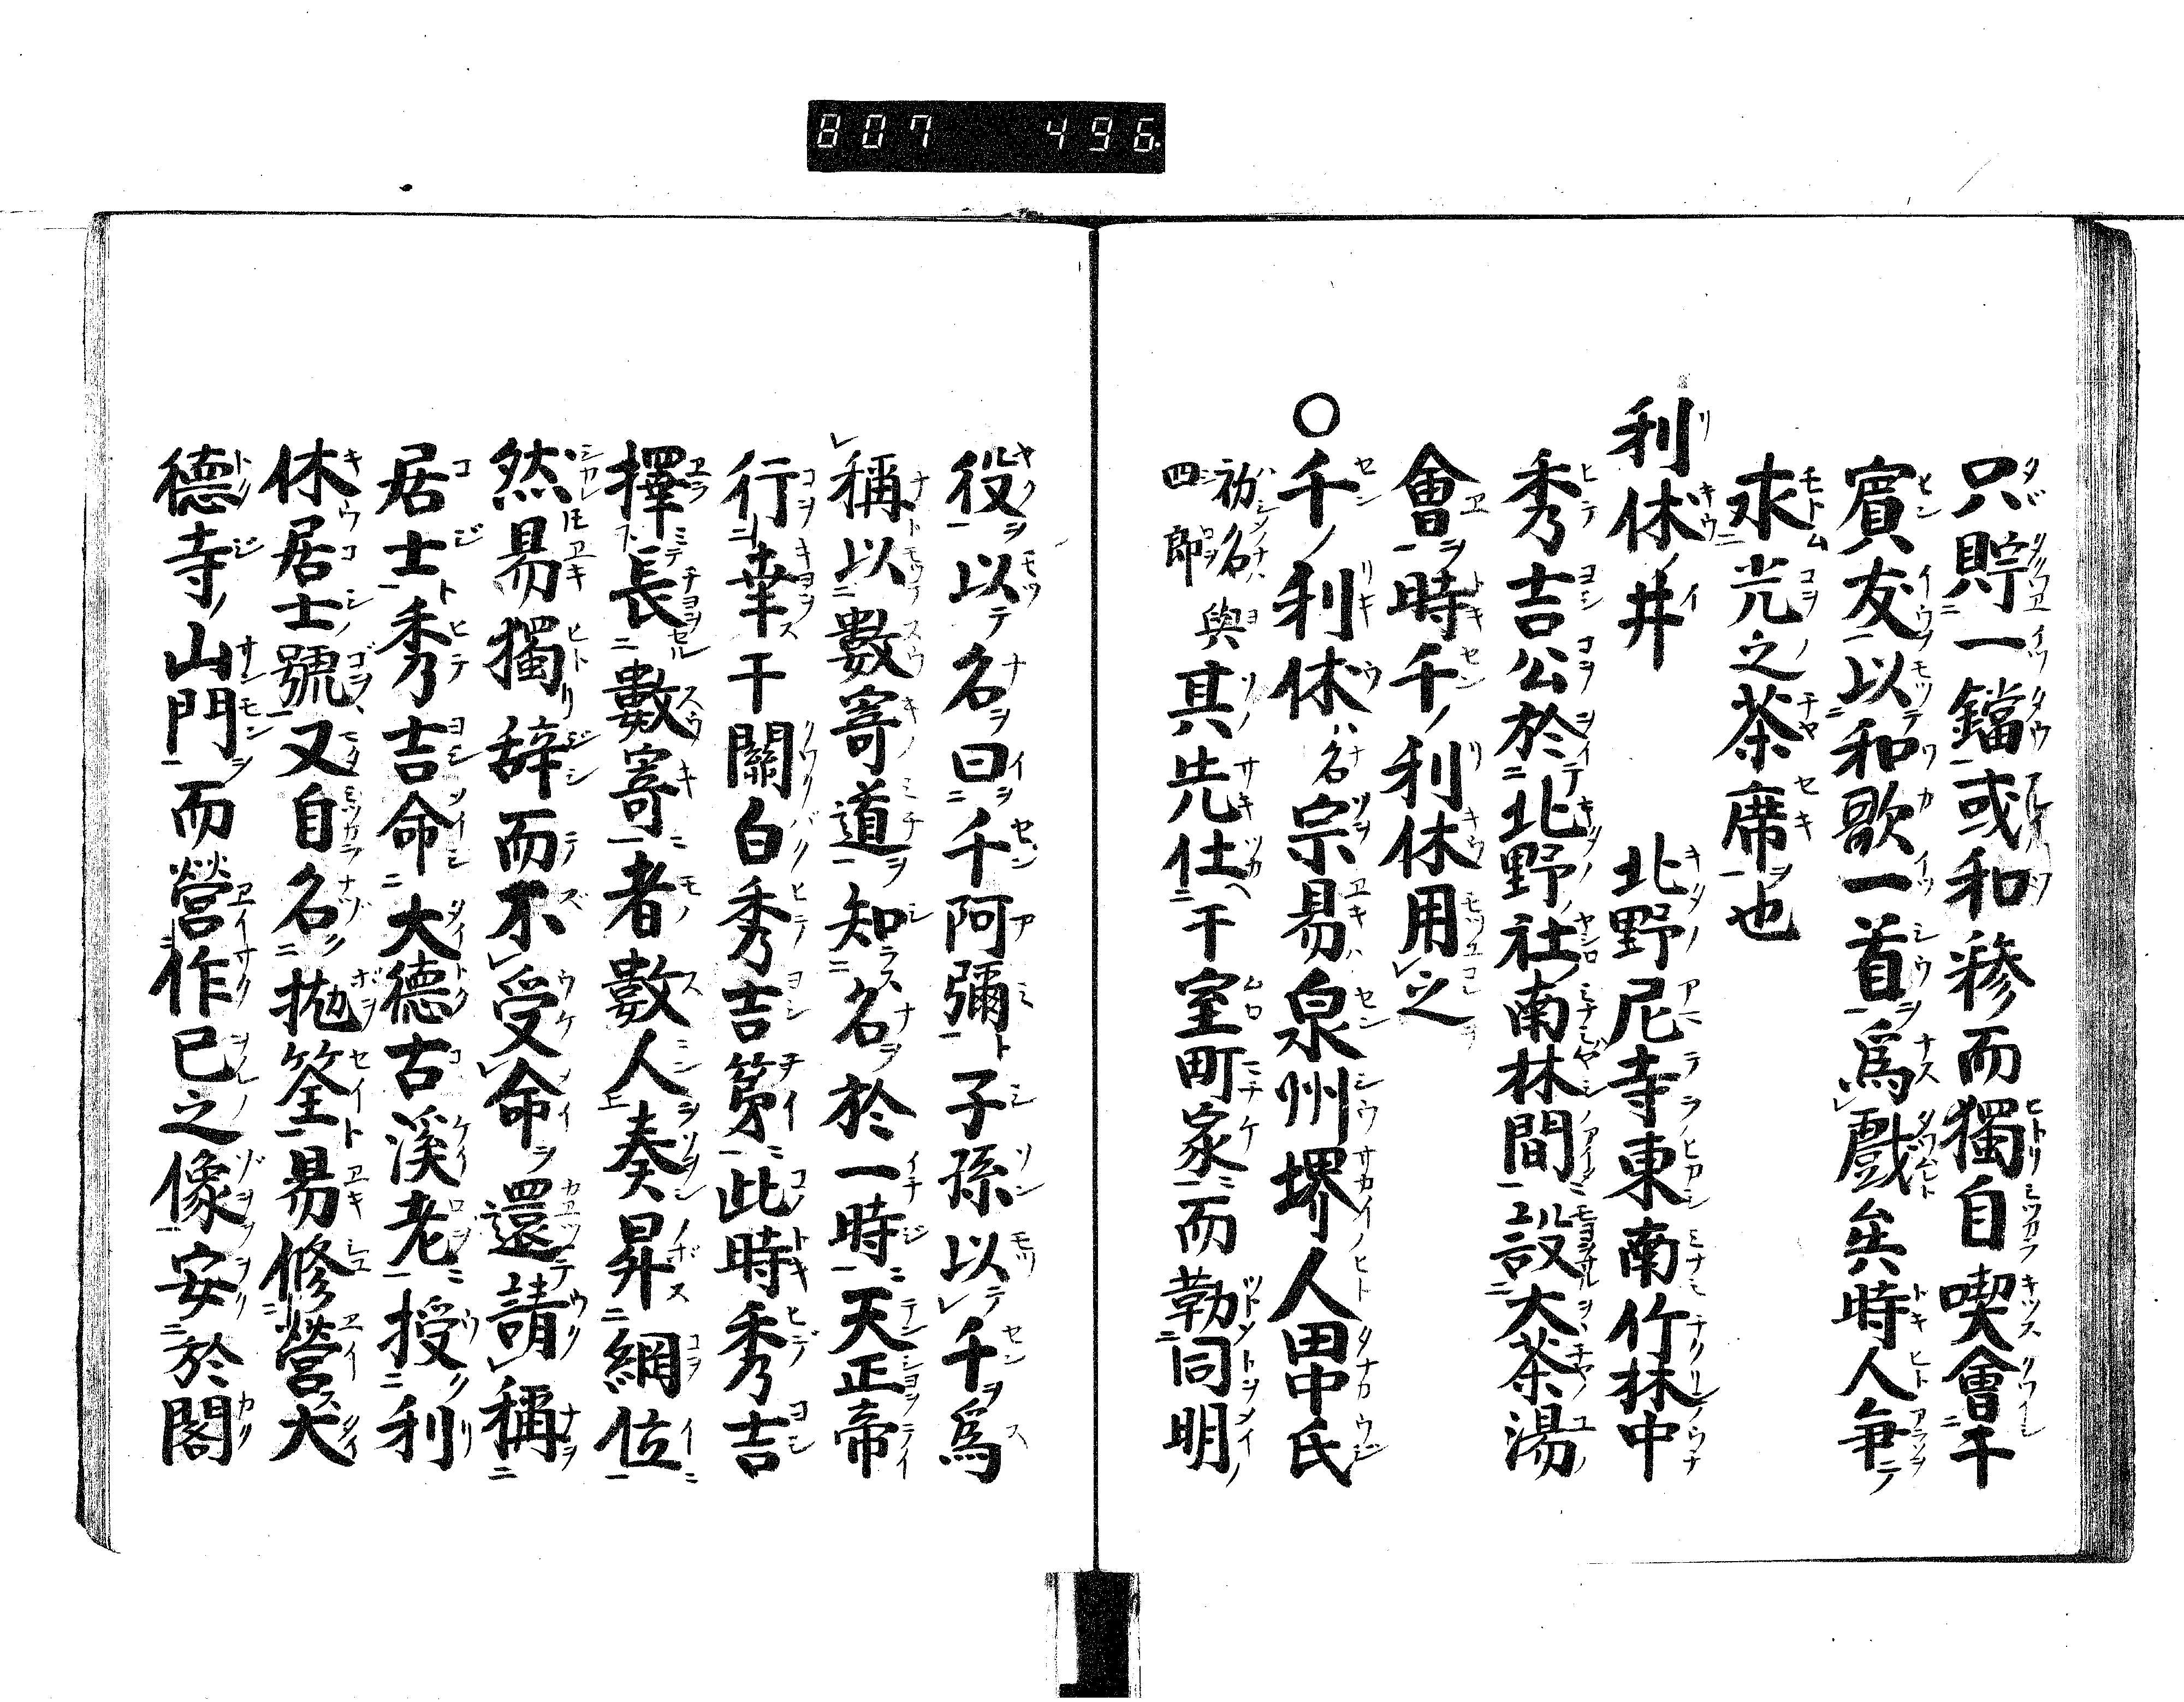 807 496.
只貯一鐺或和糝而獨自喫會于
賓友以和歌一首爲戲矣時人争
求光之茶席也
利休井 北野尼寺東南竹林中
秀吉公於北野社南林間設大茶湯
會時千利休用之
○千利休名宗易泉州堺人田中氏
初名與四郎其先仕于室町家而勤同明
役以名曰千阿彌子孫以千爲
稱以數寄道知名於一時天正帝
行幸于關白秀吉第此時秀吉
擇長數寄者數人奏昇綱位
然易獨辞而不受命還請稱
居士秀吉命大德古溪老授利
休居士號又自名抛筌易修營大
德寺山門而營作已之像安於閣